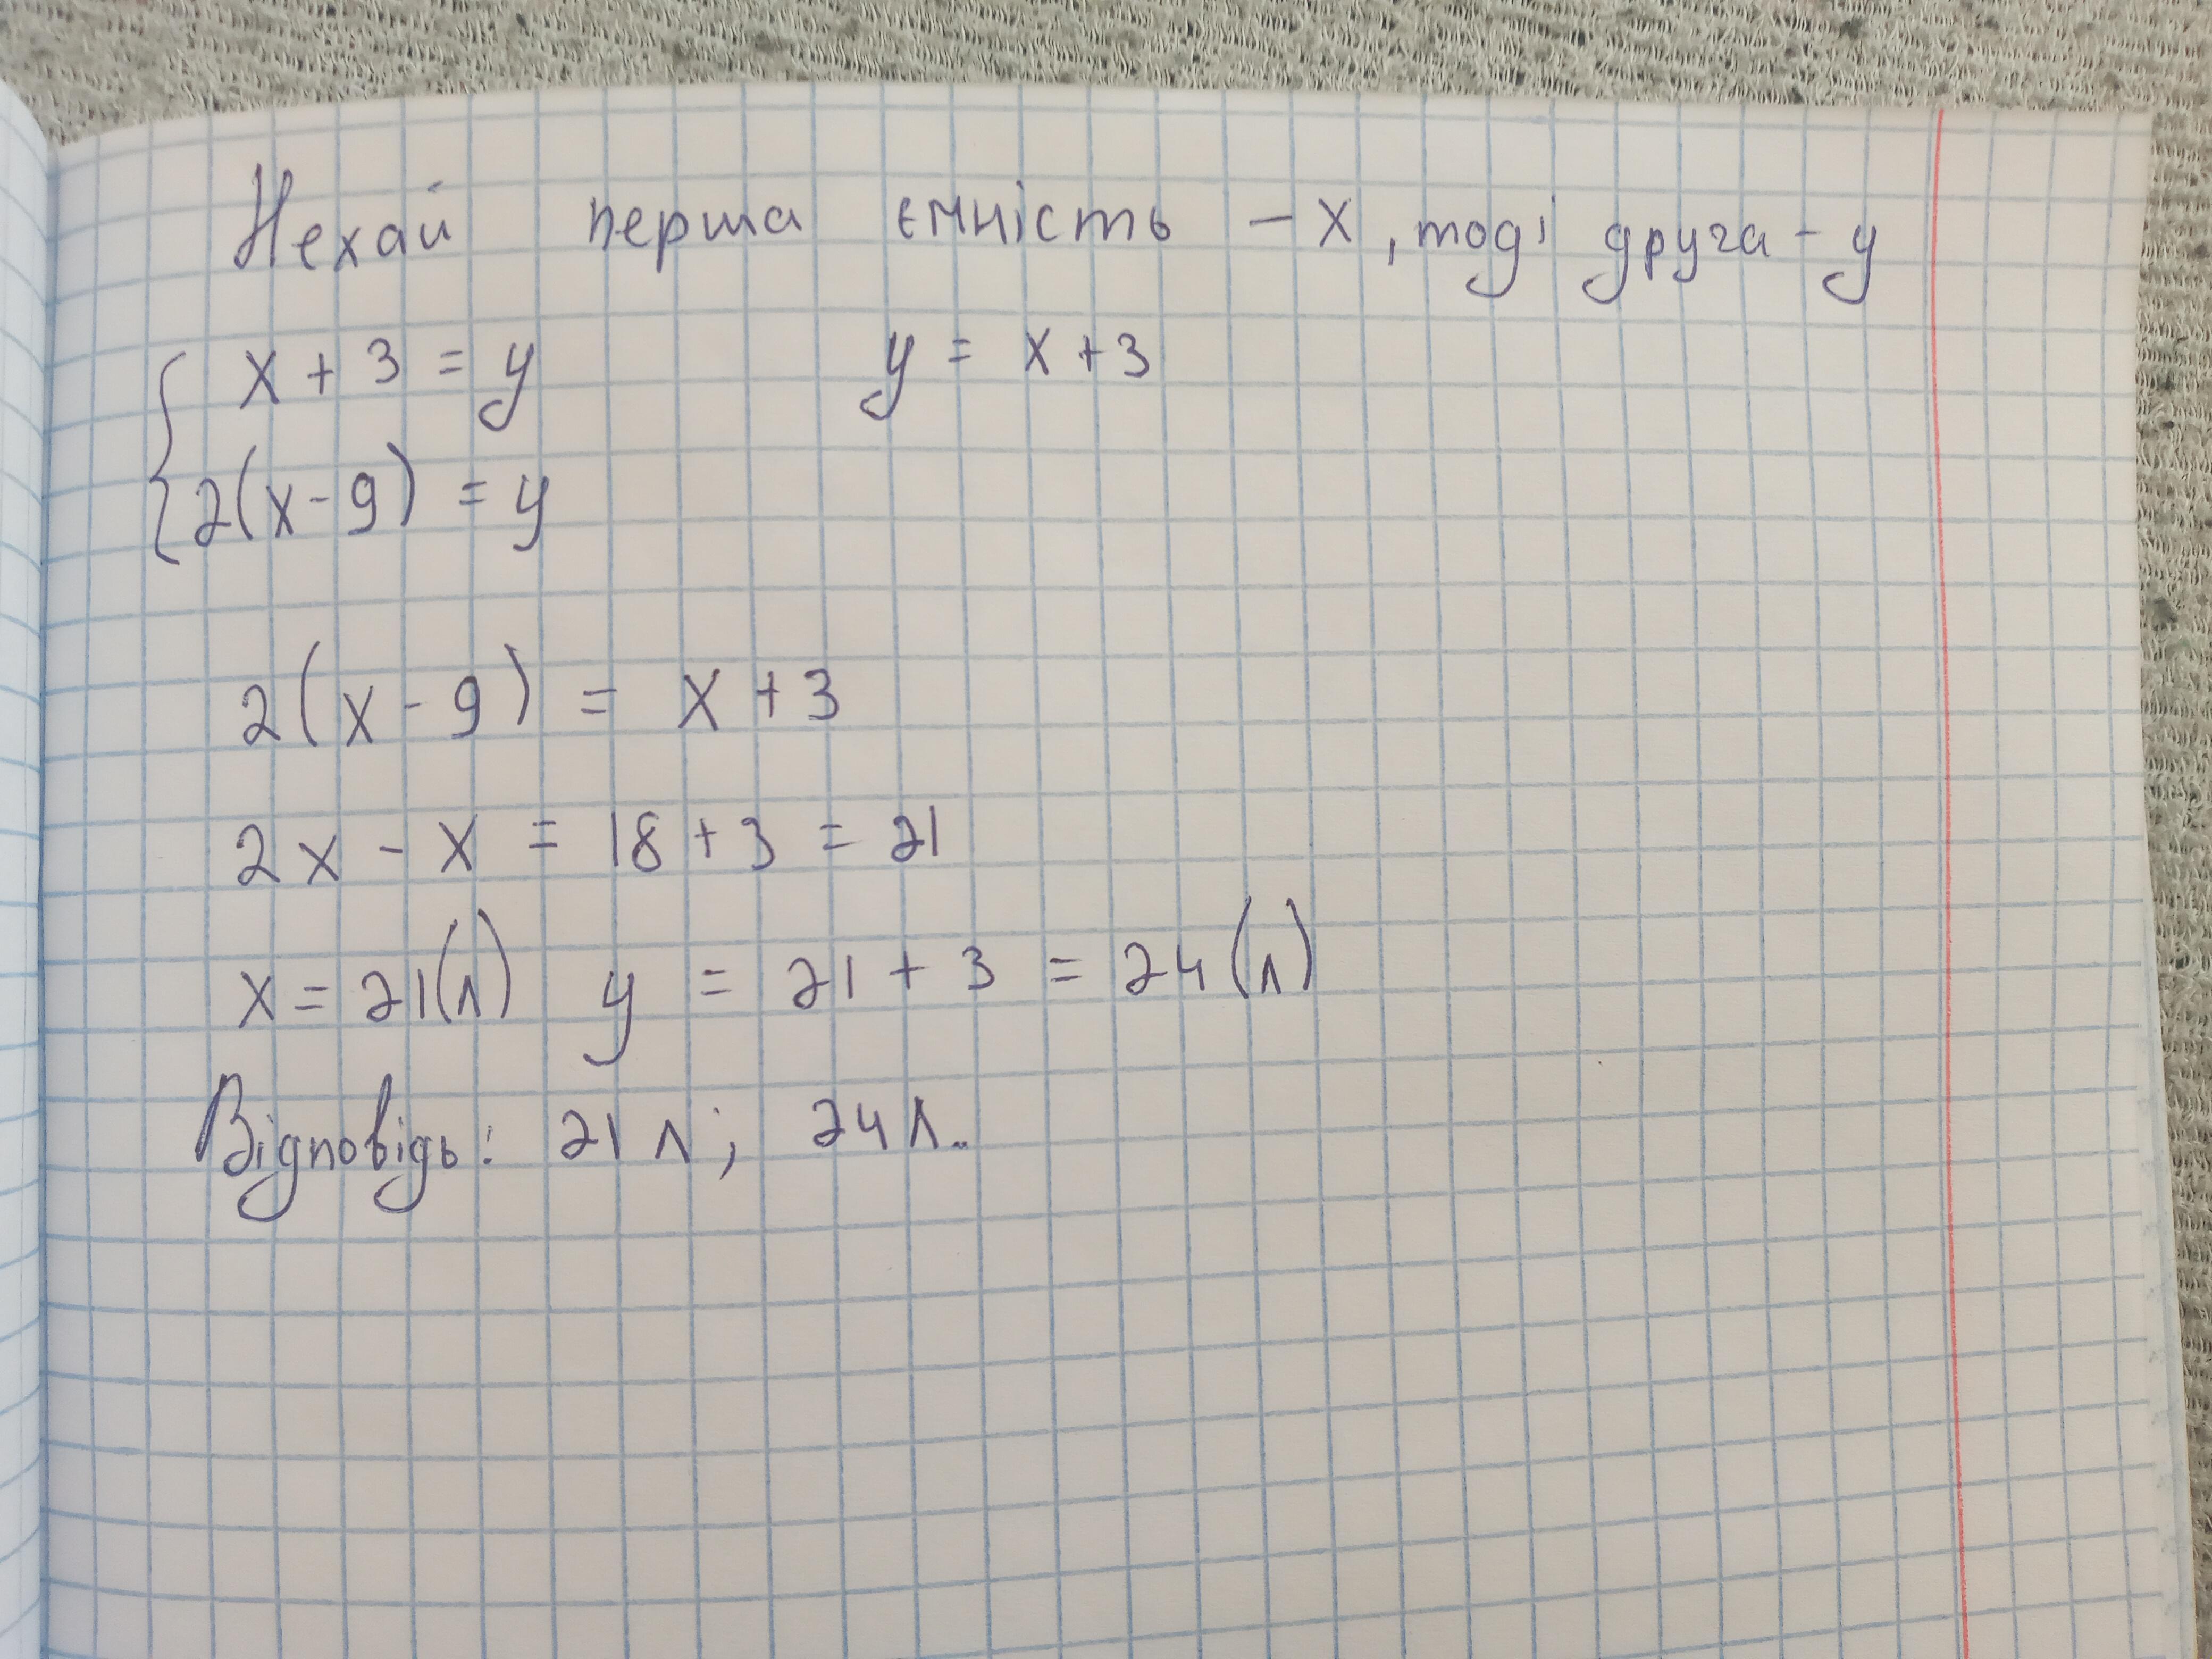 Нехай перша ємність - х, тоді друга - у
х + 3 = у
у = х + 3
2(х - 9) = у
2(х - 9) = х + 3
2х - х = 18 + 3 = 21
х = 21(л) у = 21 + 3 = 24(л)
Відповідь: 21 л; 24 л.